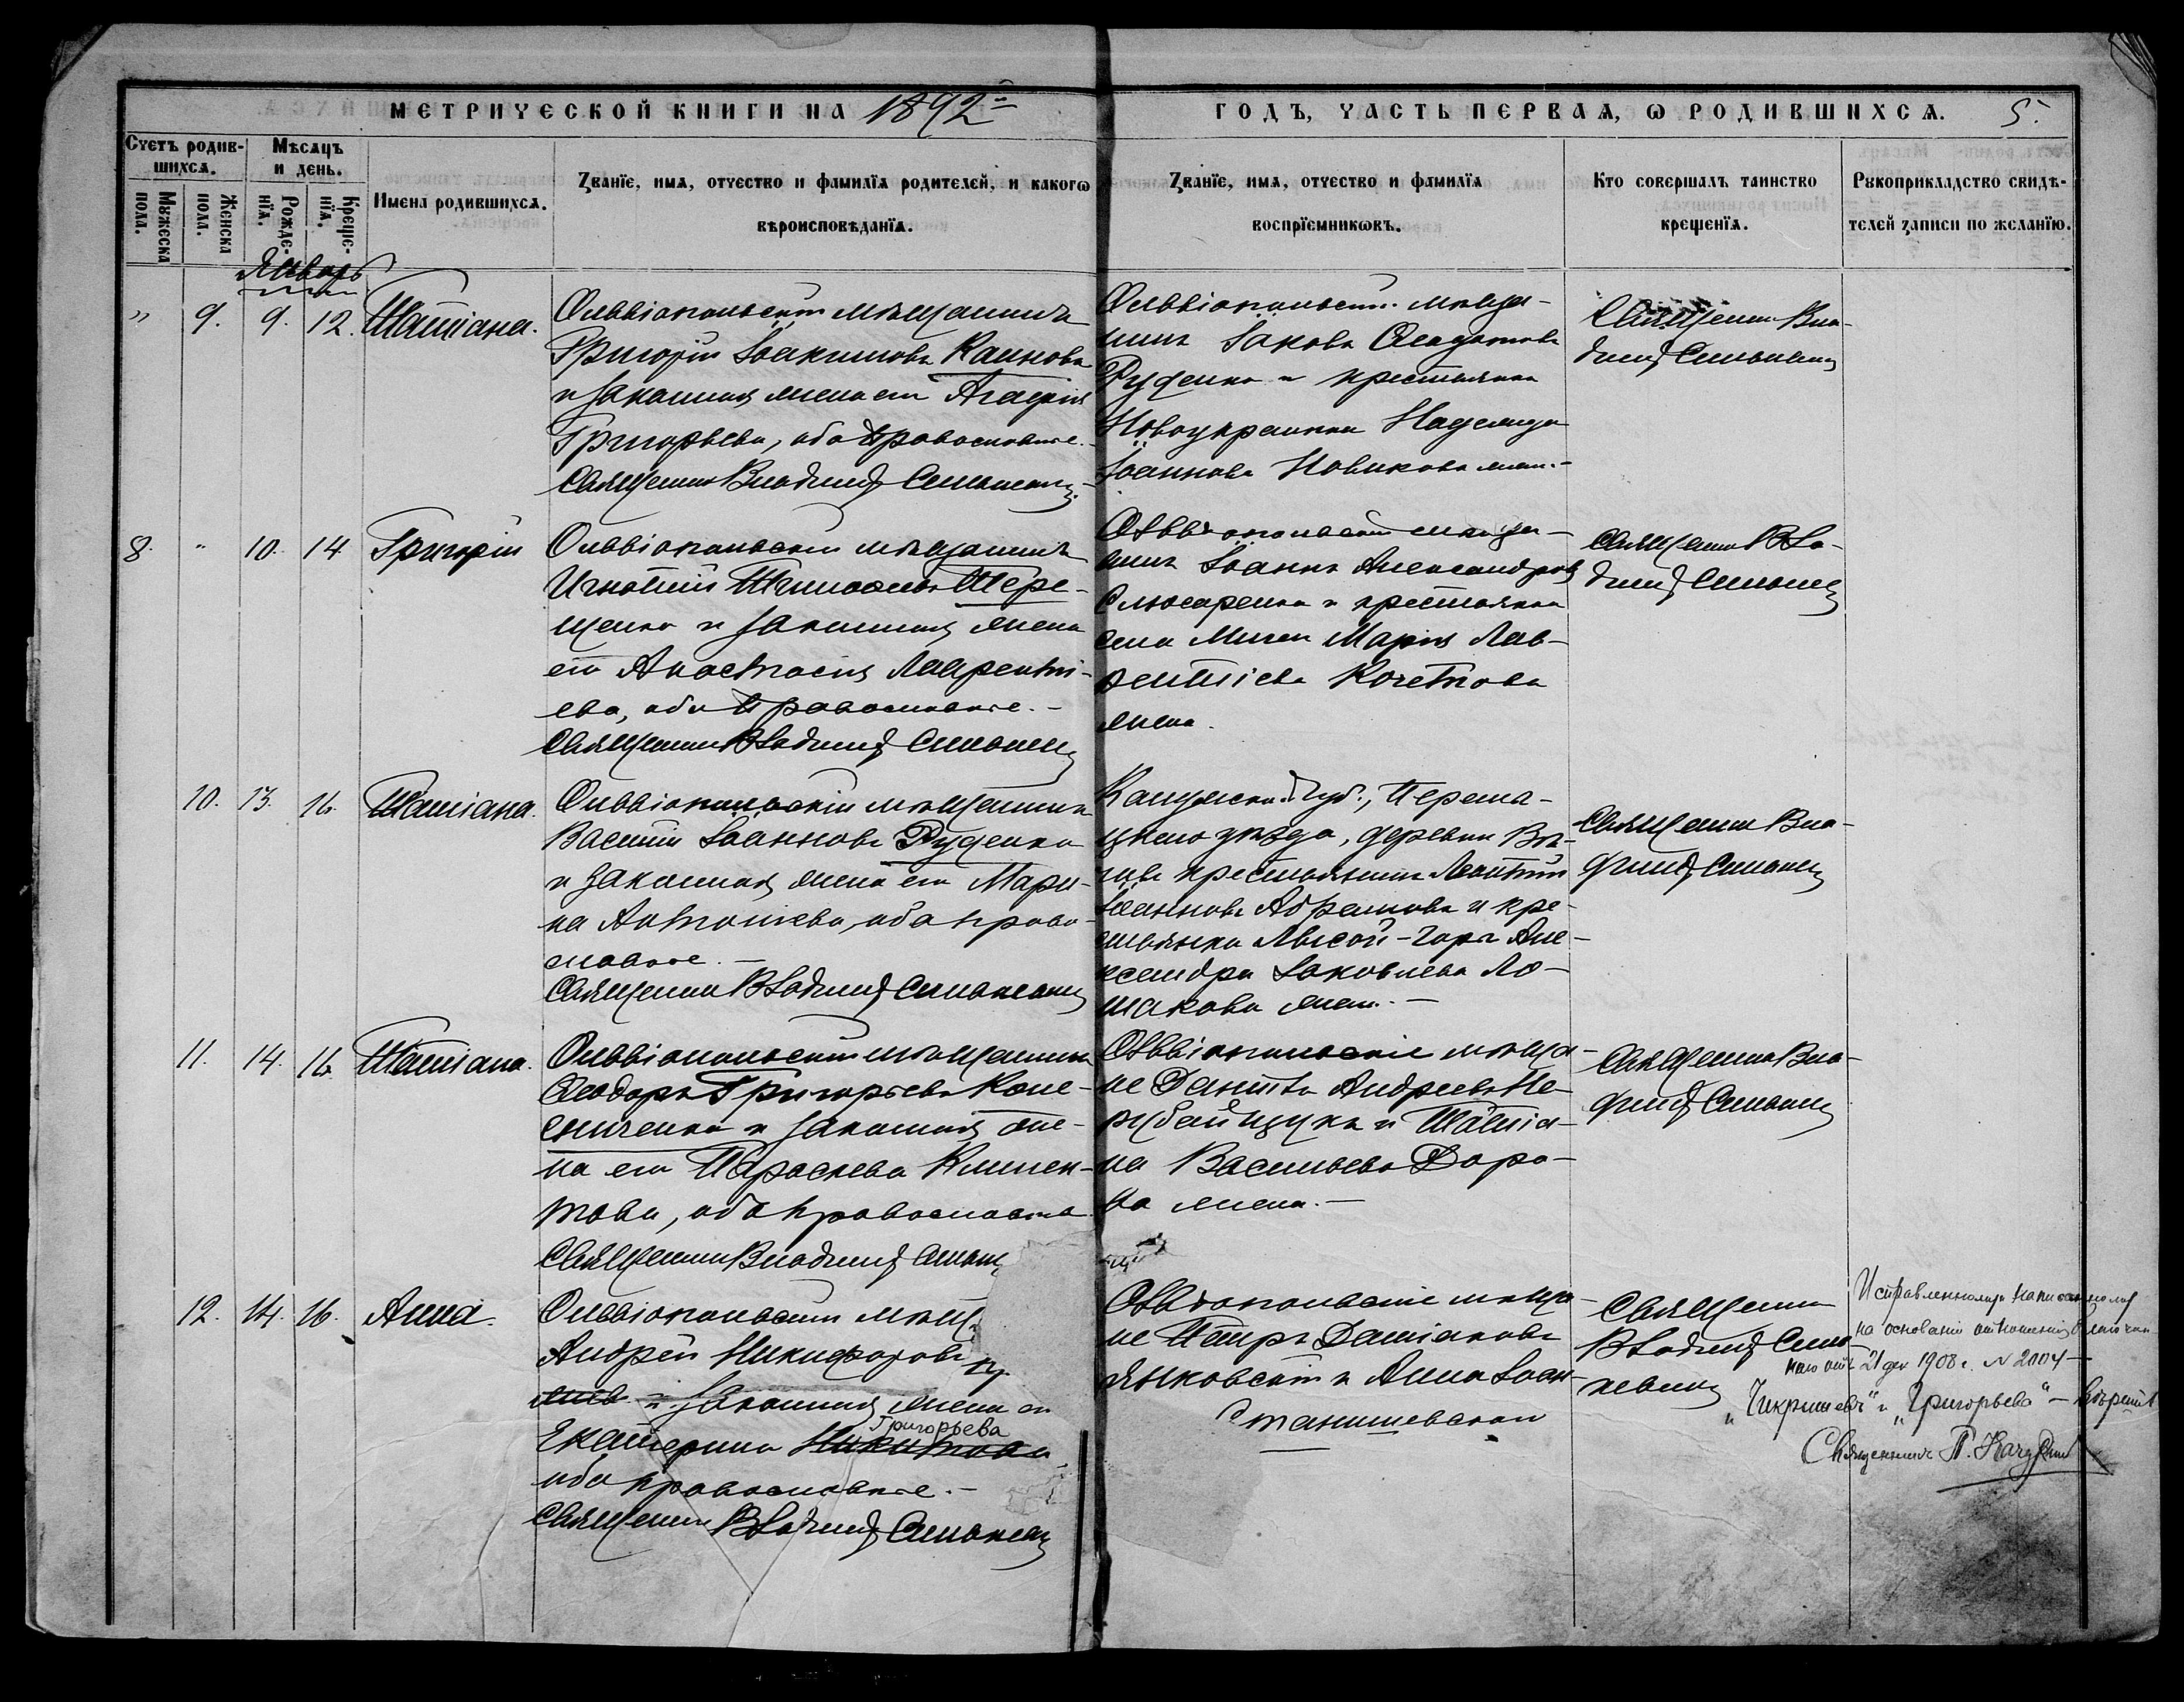 МЕТРИЧЕСКОЙ КНИГИ НА 1892й
ГОДЪ, ЧАСТЬ ПЕРВАЯ, Ѡ РОДИВШИХСѦ. 5.
Счетъ родив-
шихсѧ.
Мѣсѧцъ
и день.
Мꙋжеска
пола.
Женска
пола.
Рожде-
нїѧ.
Креще-
нїѧ.
Имена родившихсѧ.
Званїе, имѧ, отчество и фамилїѧ родителей, и какогѡ
вѣроисповѣданїѧ.
Званїе, имѧ, отчество и фамилїѧ
воспрїемникѡвъ.
Кто совершалъ таинство
крещенїѧ.
Рꙋкоприкладство свидѣ-
телей записи по желанїю.
Январь
" 9. 9. 12. Татіана.
Ольвіопольскій мѣщанинъ
Григорій Іоакимовъ Каиновъ
и законная жена его Агафія
Григорьева, оба православные.
Священникъ Владимір Синькевич
Ольвіопольск. мѣща-
нинъ Іаковъ
Руденко и крестьянка
Новоукраинки Надежда
Іоаннова Новикова жен.-
Священник Вла-
димір Синькевич
8. " 10. 14 Григорій
Ольвіопольскій мѣщанинъ
Игнатій Тимофеевъ Тере-
щенко и законная жена
его Анастасія Лавренті-
ева, оба православные.-
Священник Владимір Синькевич
Ольвіопольскій мѣща-
нинъ Іоаннъ Александровъ
Слюсаренко и крестьянка
села Мигеи Марія Лав-
рентіева Кочетова
жена.
Священник Вла-
димір Синькевич
10. 13. 16. Татіана.
Ольвіопольскій мѣщанинъ
Василій Іоанновъ Руденко
и законная жена его Мари-
на Антоніева, оба право-
славные.-
Священник Владимір Синькевич
Калужской губ., Перемы-
шльскаго уѣзда, деревни
крестьянинъ Леонтій
Іоанновъ Абрамовъ и кре-
стьянка Лысой-Горы Але-
ксандра Іаковлева Ло-
шакова жен.-
Священник Вла-
димір Синькевич
11. 14. 16. Татіана.
Ольвіопольскій мѣщанинъ
Ѳеодоръ Григорьевъ Коле-
сниченко и законная же-
на его Параскева Климен-
това, оба православные.
Священник Владимір
Ольвіопольскіе мѣща-
не Даніилъ Андреевъ Не-
рубайщукъ и Татіа-
на Васильева Доро-
жена.-
Священник Вла-
димір Синькевич
12. 14. 16. Анна.
Ольвіопольскій мѣщ
Андрей Никифоровъ
и законная жена его
Григорьева
Екатерина Никитова
оба православные.-
Священник Владимір Синькевич
Ольвіопольскіе мѣща-
не Петръ Даміановъ
Янковскій и Анна Іоан-
Станишевская
Священник
Владимір Синь-
кевич
Исправленному написанному
на основаніи отношенія
21 дек 1908 г. № 2004 —
„Чикришевъ" и „Григорьева" — вѣрить
Священникъ П.